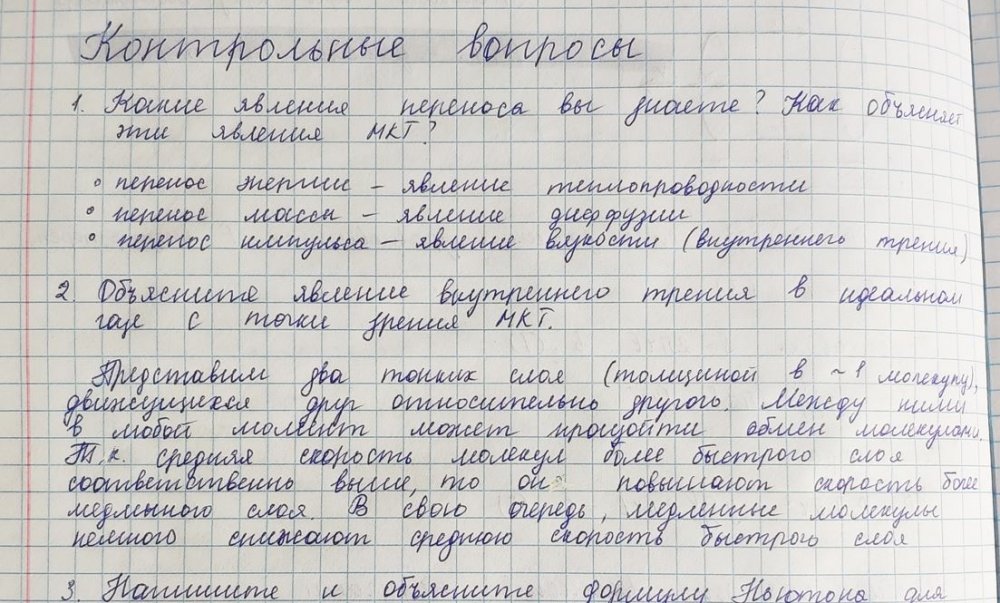 Контрольные вопросы
1. Какие явления переноса вы знаете? Как объясняет
эти явления МКТ?
• перенос энергии – явление теплопроводности
• перенос массы – явление диффузии
• перенос импульса – явление вязкости (внутреннего трения)
2. Объясните явление внутреннего трения в идеальном
газе с точки зрения МКТ.
Представим два тонких слоя (толщиной в ~ 1 молекулу),
движущихся друг относительно другого. Между ними
в любой момент может произойти обмен молекулами.
Т.к. средняя скорость молекул более быстрого слоя
соответственно выше, то он повышают скорость более
медленного слоя. В свою очередь, медленные молекулы
немного снижают среднюю скорость быстрого слоя
3. Напишите и объясните формулу Ньютона для